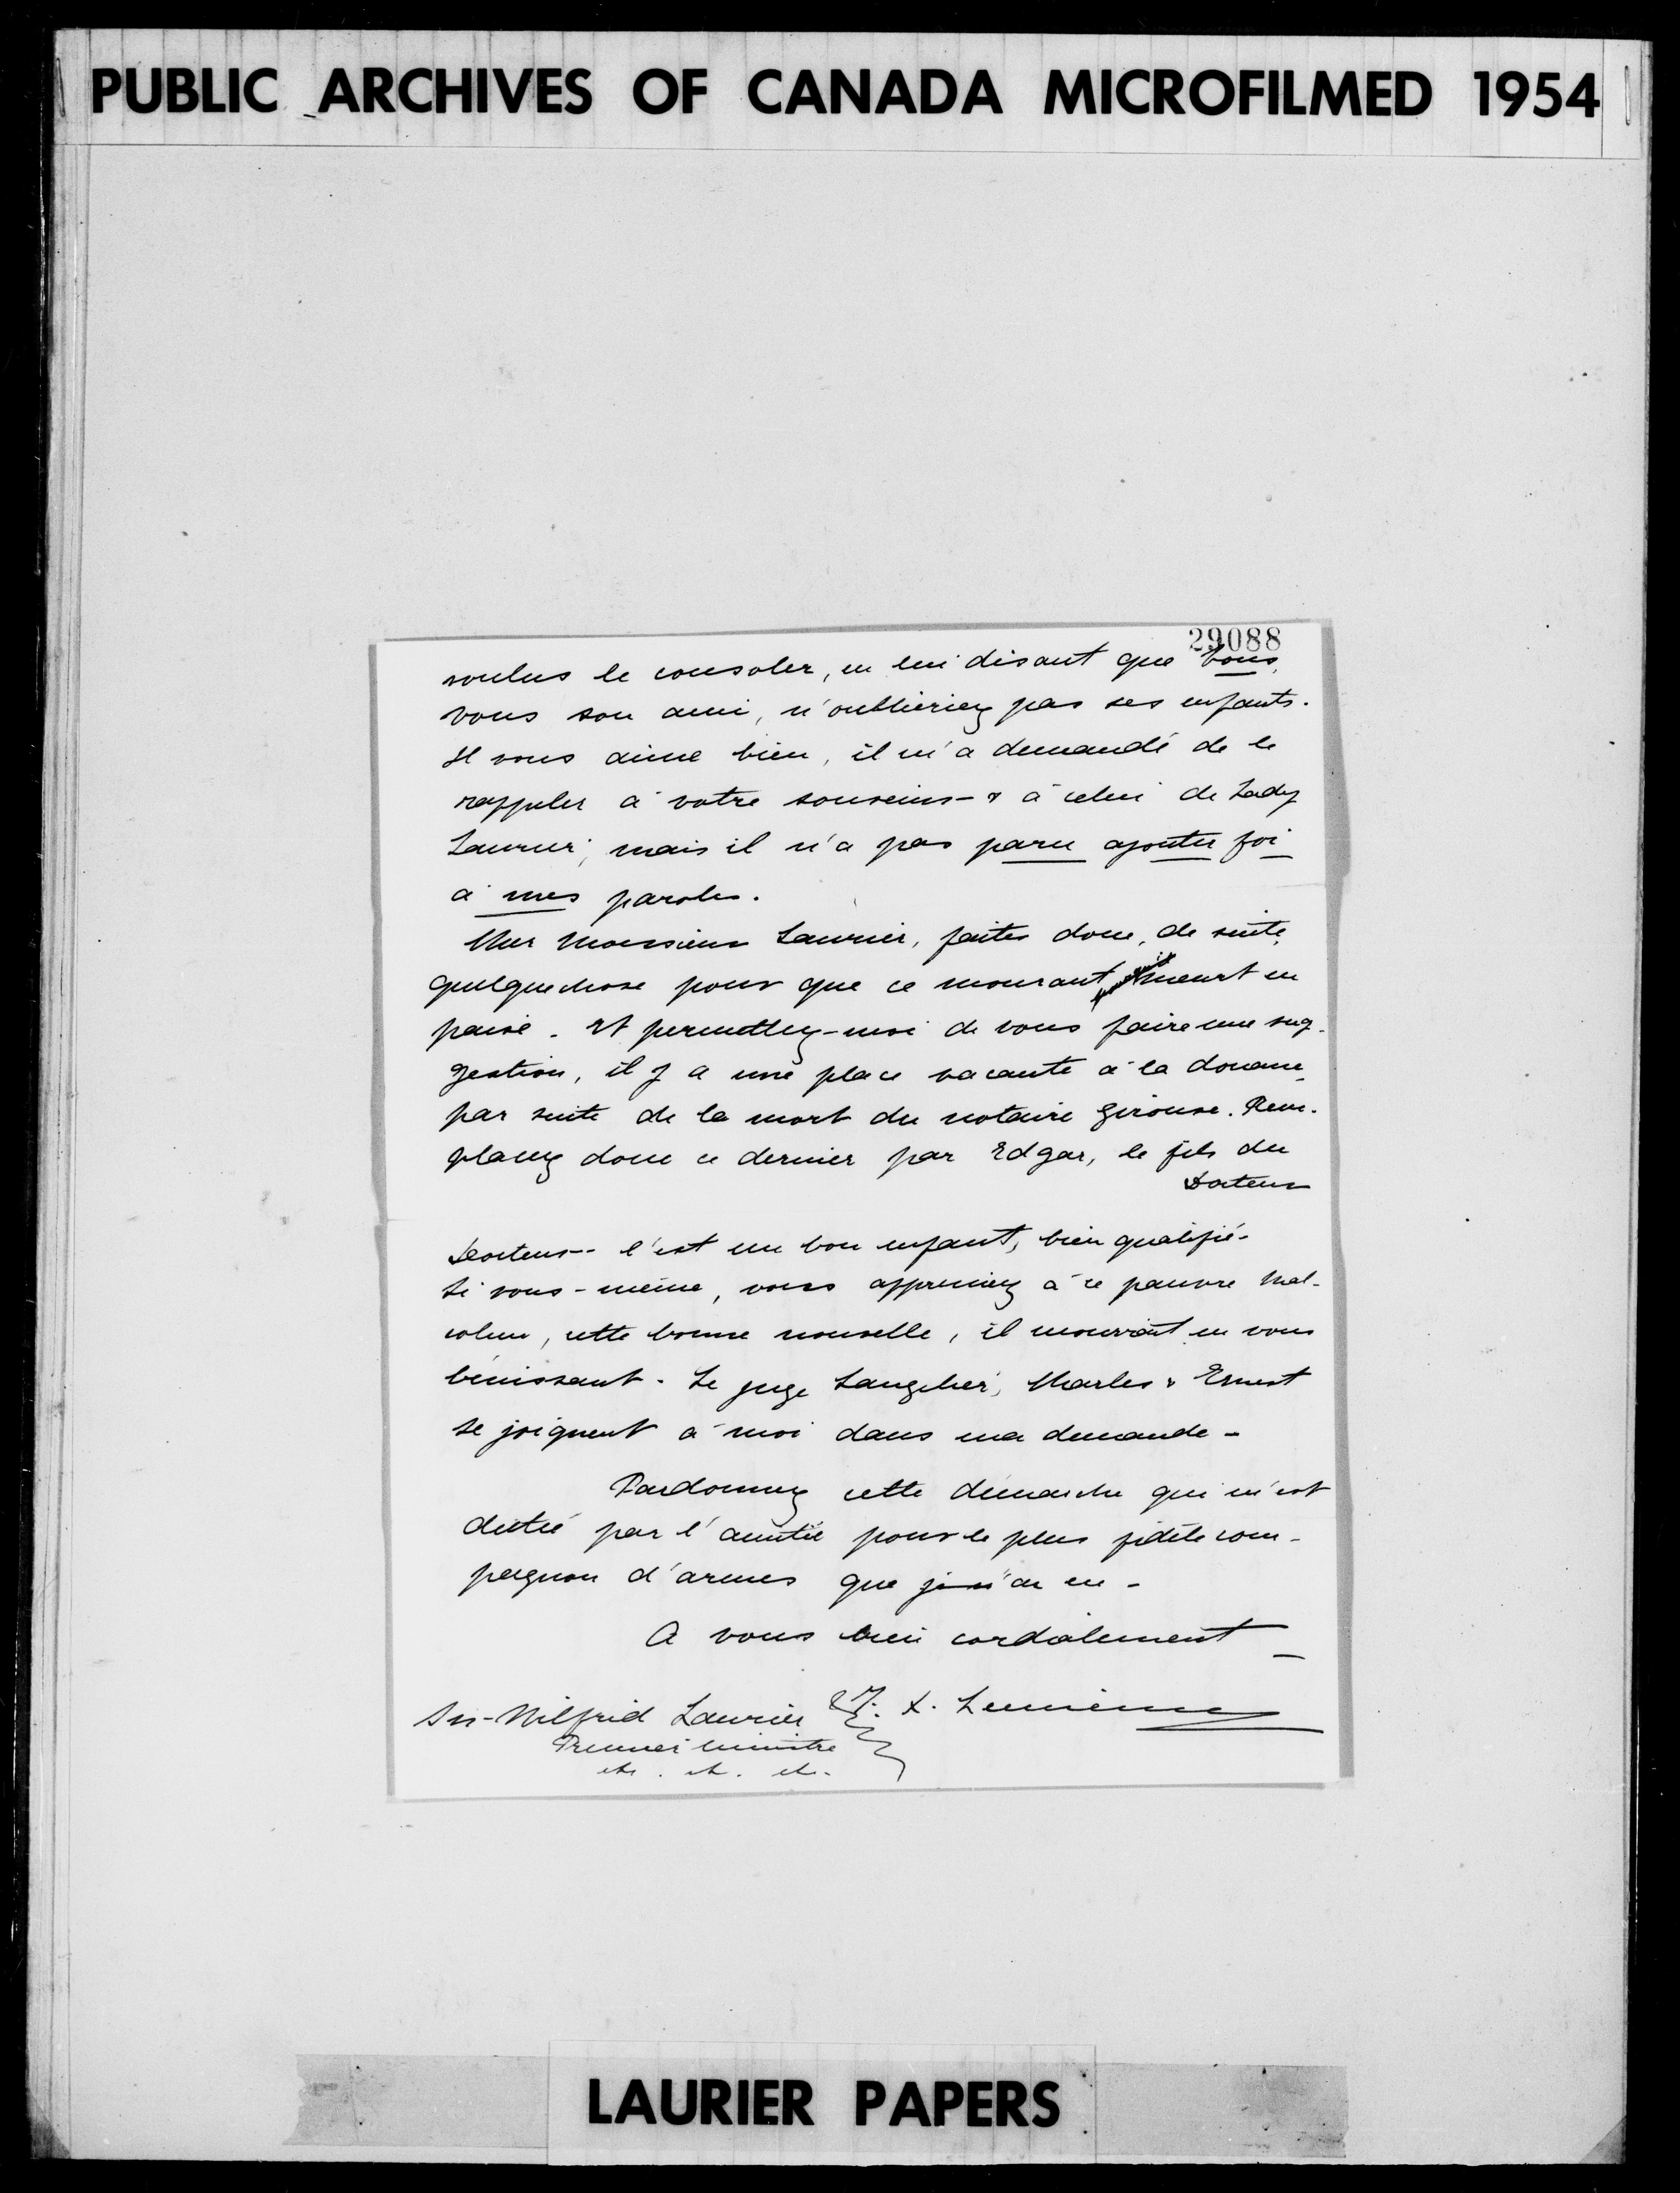 PUBLIC ARCHIVES OF CANADA MICROFILMED 1954
29088
voulus le consoler, en lui disant que vous,
vous son ami, n'oublieriez pas ses enfants.
Il vous aime bien, il m'a demandé de le
rappeler à votre souvenir - & à celui de Lady
Laurier, mais il n'a pas paru ajouter foi
à mes paroles.
Cher Monsieur Laurier, faites donc, de suite,
quelquechose pour que ce mourant meurt en
paix. Et permettez-moi de vous faire une sug-
gestion, il y a une place vacante à la douane,
par suite de la mort du notaire Girouse. Rem-
placez donc ce dernier par Edgar, le fils du
Docteur
Docteur - c'est un bon enfant, bien qualifié -
Si vous-même, vous appreniez à ce pauvre Mal-
colm, cette bonne nouvelle, il mourrait en vous
bénissant. Le juge Langelier, Charles & Ernest
se joignent à moi dans ma demande -
Pardonnez cette démarche qui m'est
dictée par l'amitié pour le plus fidèle com-
pagnon d'armes que j'ai eu -
A vous bien cordialement
F. X. Lemieux
Sir Wilfrid Laurier
Premier Ministre
etc. etc. etc.
LAURIER PAPERS